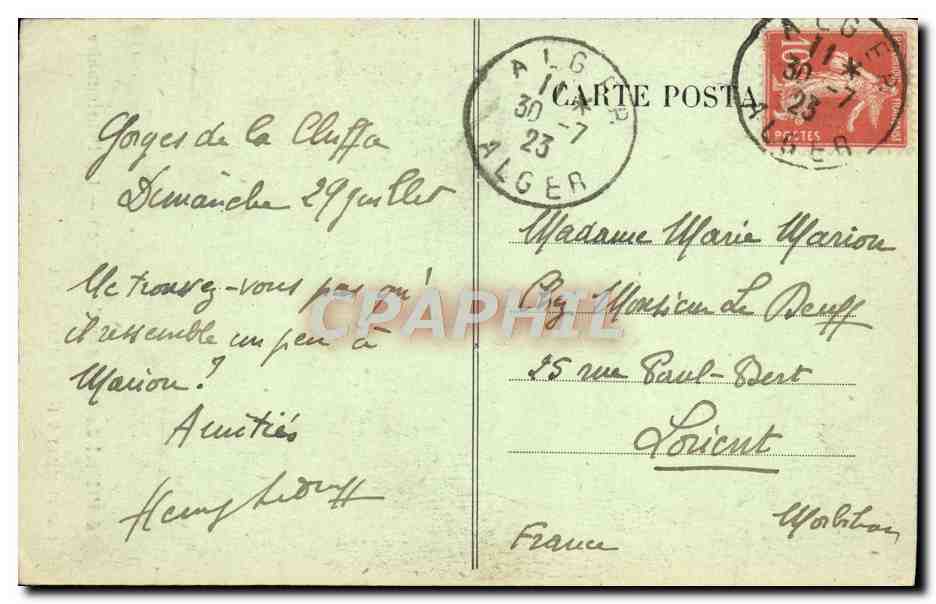 CARTE POSTA
ALGER
11 *
30 -7
23
ALGER
ALGER
11 *
30 -7
23
ALGER
10c
POSTES
Gorges de la Chiffa
Dimanche 29 juillet
Ne trouvez-vous pas qu'
il ressemble un peu à
Marion ?
Amitiés
Henry Le Deuff
Madame Marie Marion
Chez Monsieur Le Deuff
25 rue Paul-Bert
Lorient
Morbihan
France
CPAPHIL